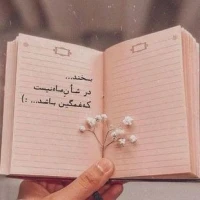 بـخند...
در شـأنِ مـاه نیست
که غمگین باشد... :)